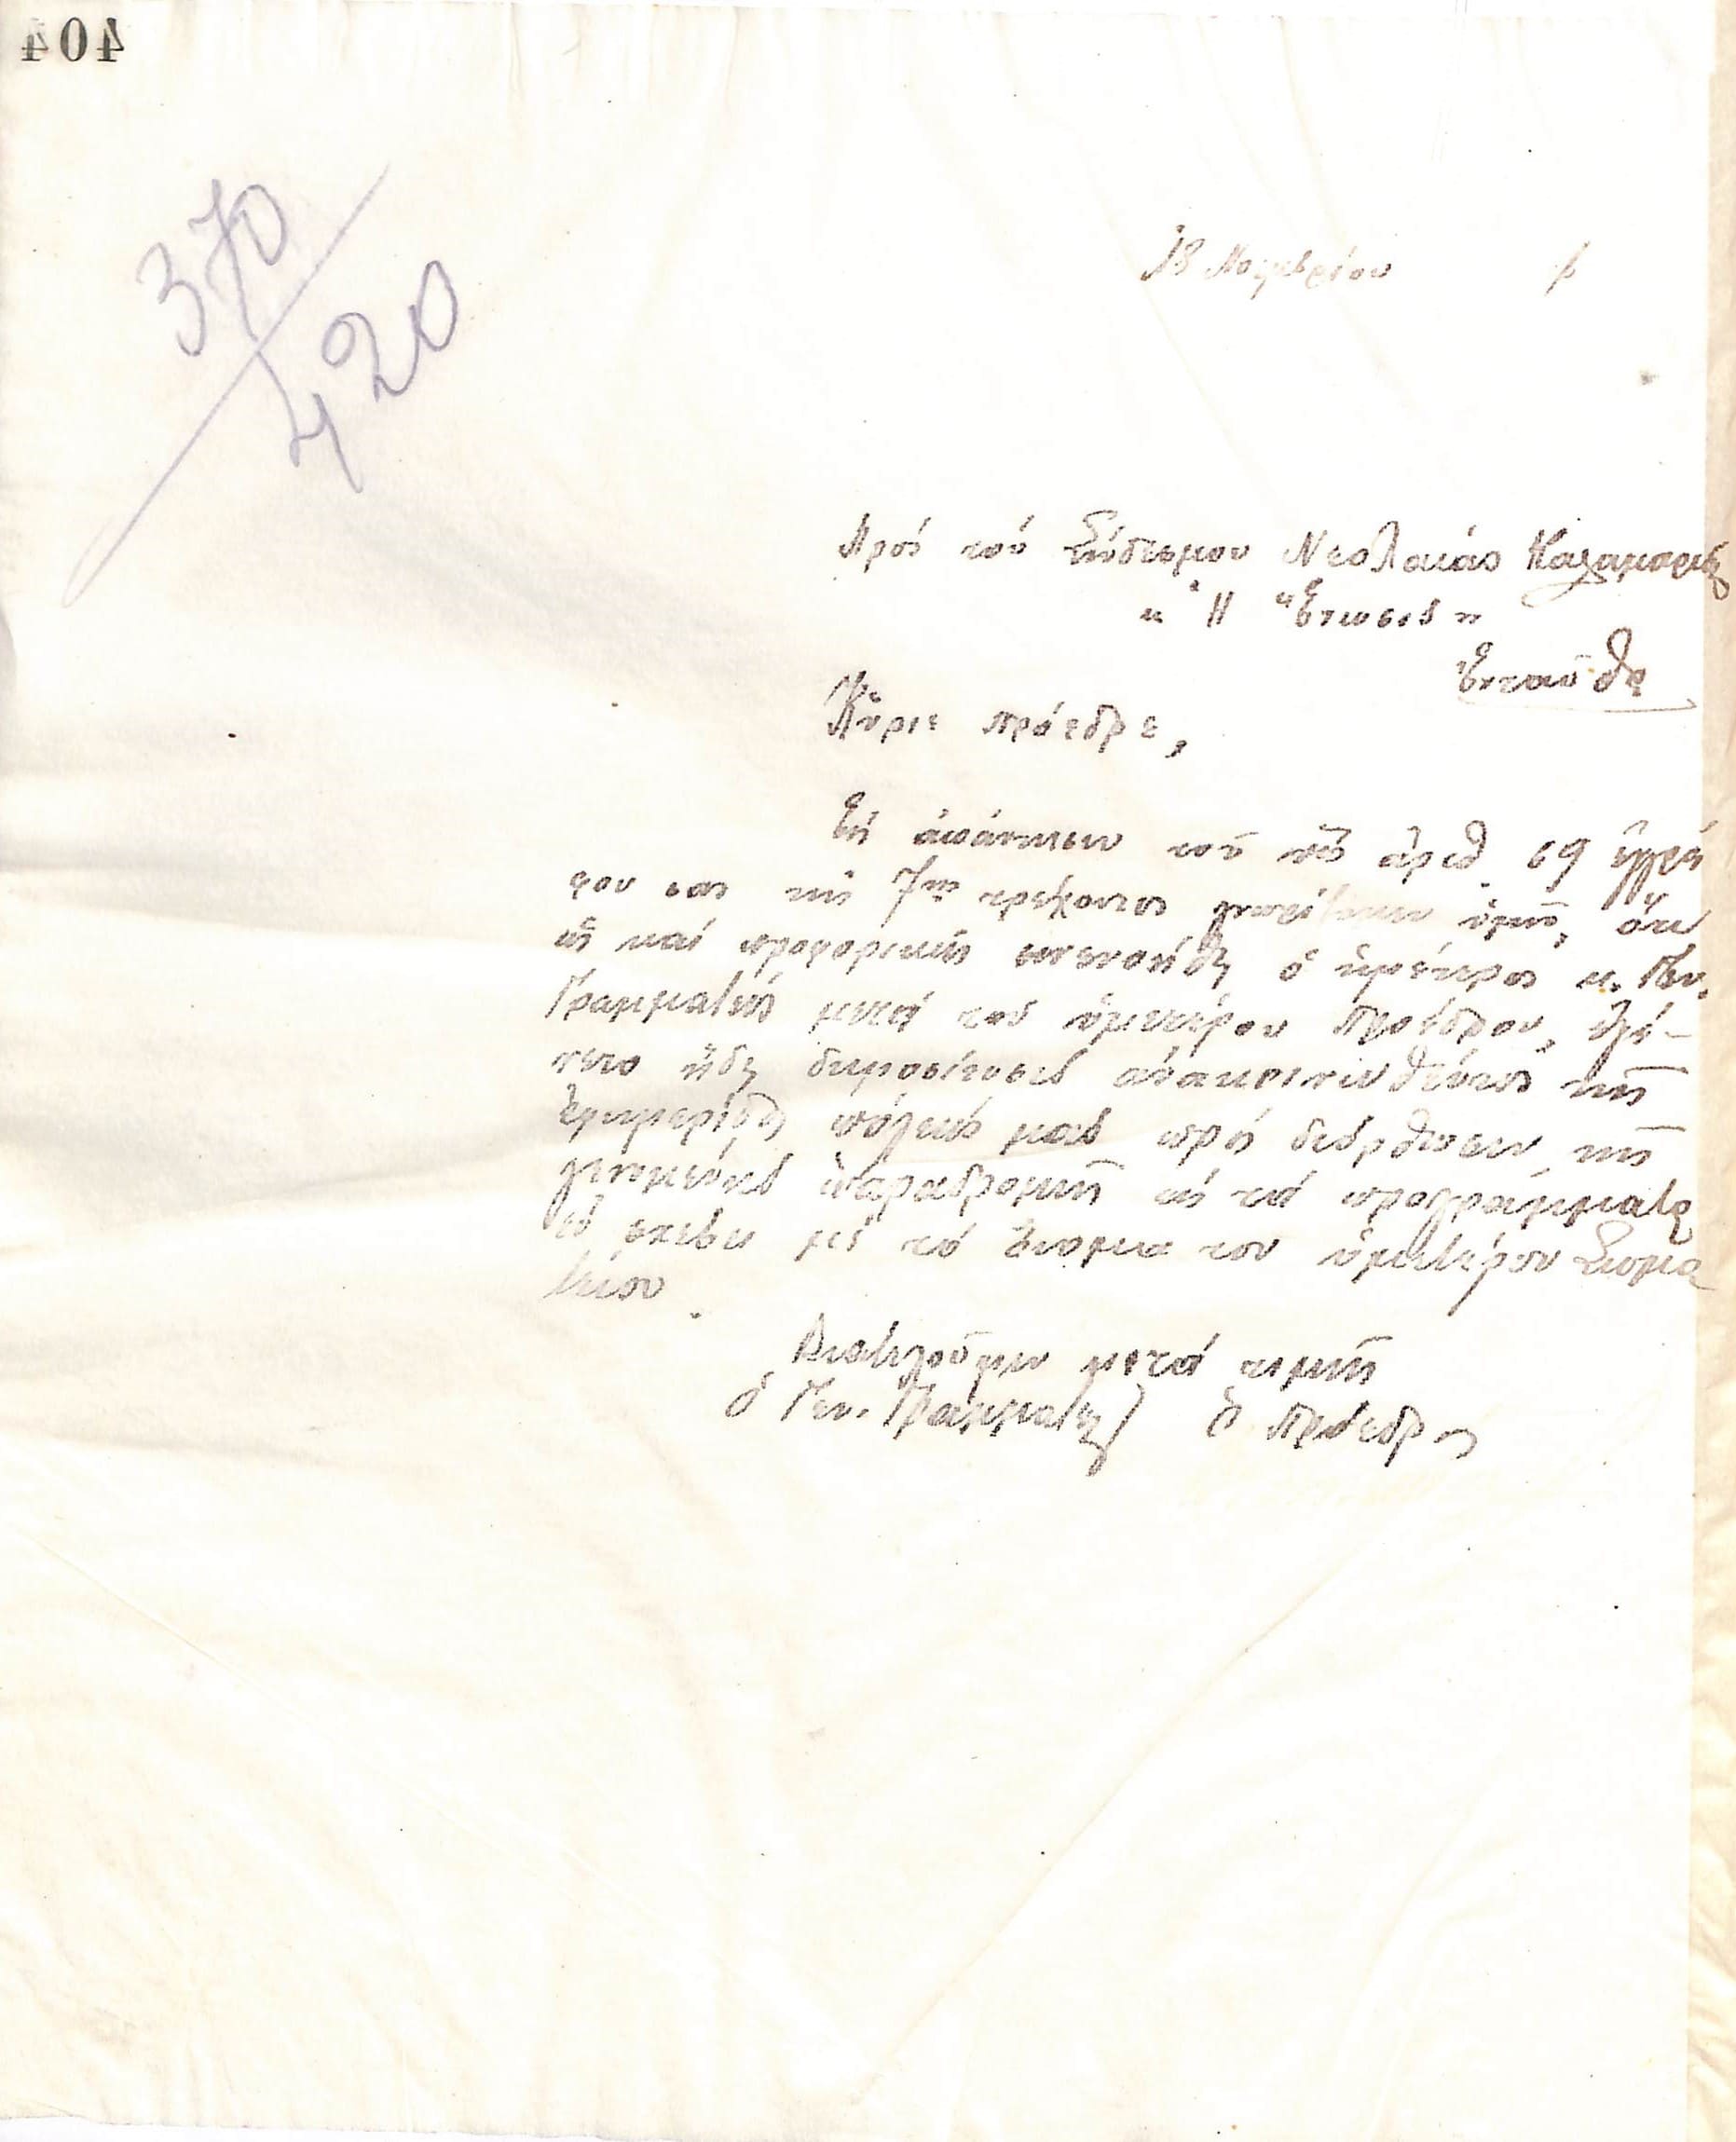 404
370
420
18 Νοεμβρίου
Πρός τόν Σύνδεσμον Νεολαίας Καλαμαριᾶς
« Ἡ Ἕνωσις »
Ἐνταῦθα
Κύριε Πρόεδρε,
Εἰς ἀπάντησιν τοῦ ὑπ' ἀριθ. 69 ἐγγρά
φου σας τῆς 7ης τρέχοντος γνωρίζομεν ὑμῖν, ὅτι
ὡς καί προφορικῶς συνενοήθη ὁ ἡμέτερος κ. Γεν.
Γραμματεύς μετά τοῦ ὑμετέρου Προέδρου, ἐγέ-
νετο ἤδη δημοσίευσις τῆς
πόλεώς μας πρός διόρθωσιν τῆς
γενομένης παραδρομῆς εἰς τά προγράμματα
ἐν σχέσει μέ τό ὄνομα του ὑμετέρου Σωμα
τείου.
Διατελοῦμεν μετά τιμῆς
Ὁ Γεν. Γραμματεύς Ὁ Πρόεδρος